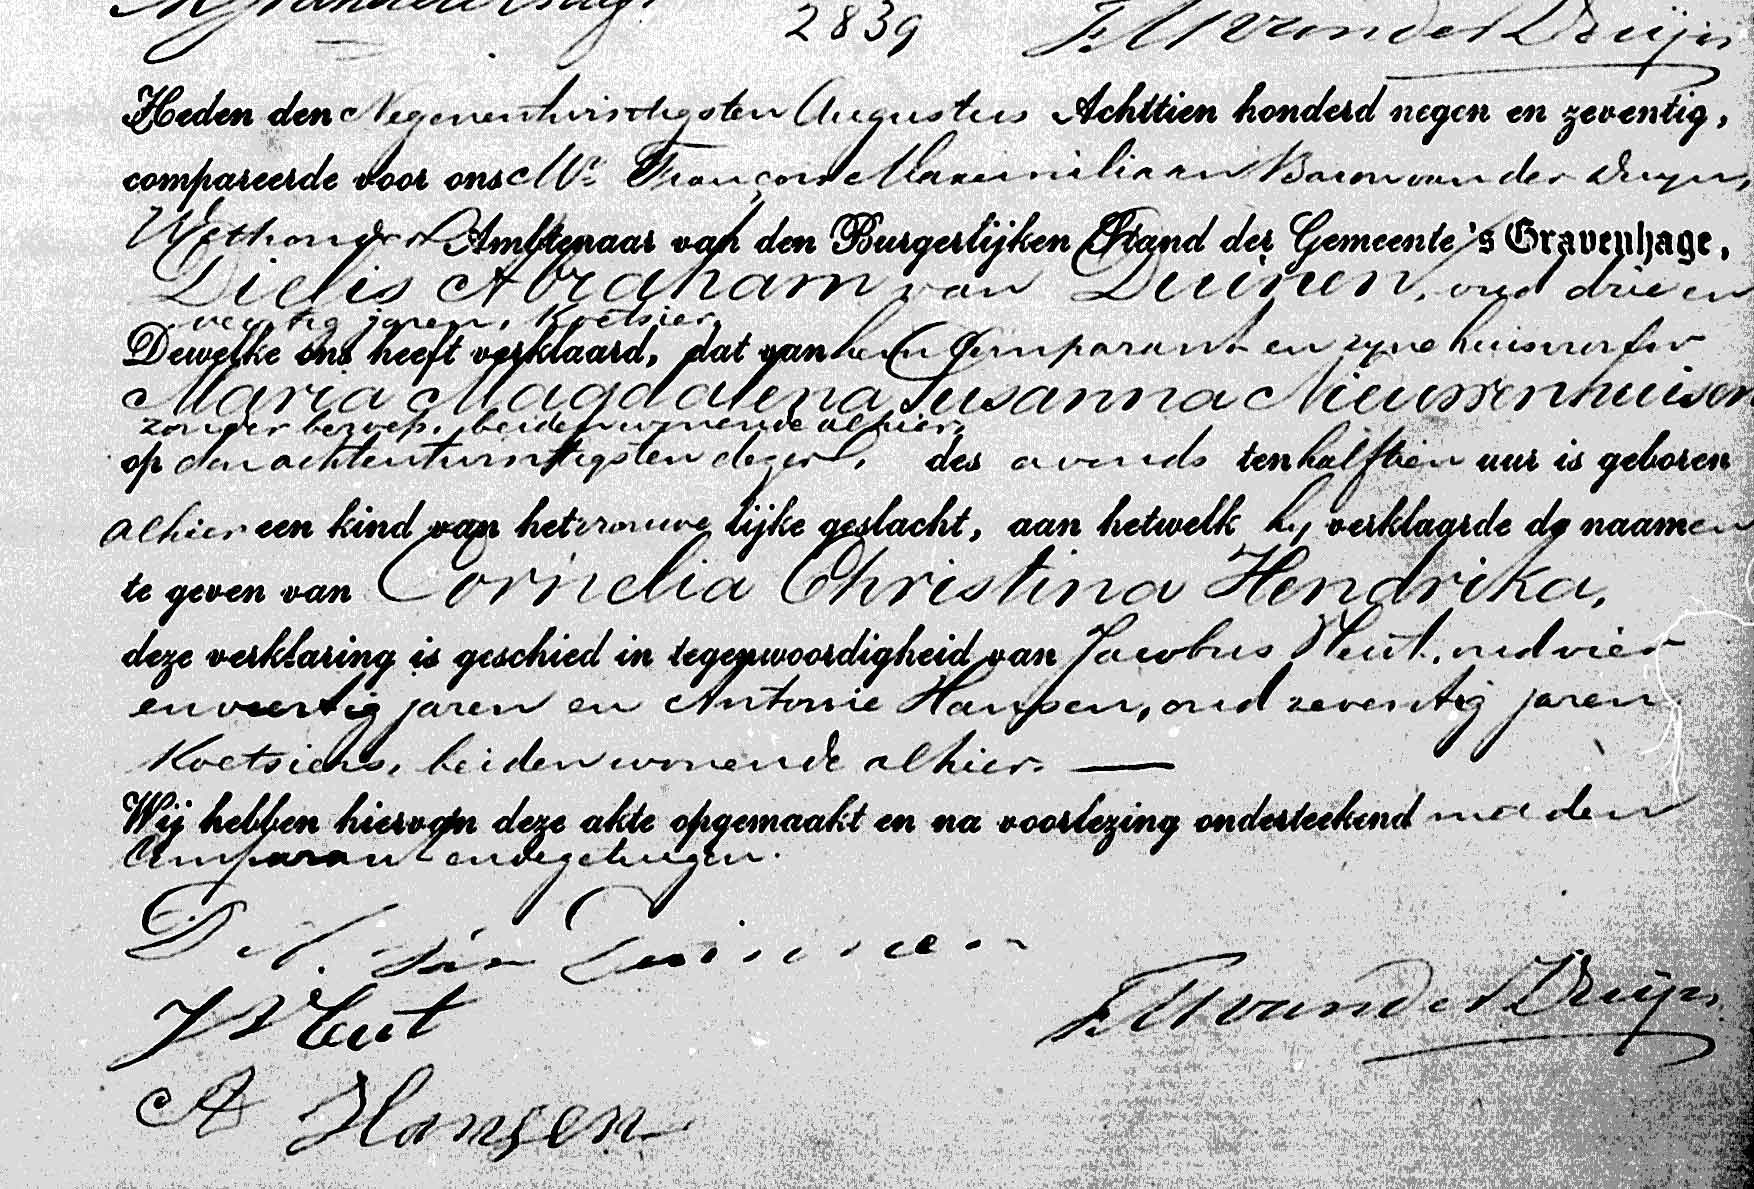 2839 F M van der Duijn
Heden den Negenentwintigsten Augustus Achttien honderd negen en zeventig,
compareerde voor ons Mr. François Maximiliaan Baron van der Duyn,
Wethouder Ambtenaar van den Burgerlijken Stand der Gemeente 's Gravenhage,
Dielis Abraham van Duinen, oud drie en
veertig jaren, Koetsier,
Dewelke ons heeft verklaard, dat van hem Comparant en zyne huisvrouw
Maria Magdalena Susanna Nieuwenhuisen
zonder beroep, beiden wonende alhier,
op den achtentwintigsten dezer, des avonds ten half tien uur is geboren
alhier een kind van het vrouwelijke geslacht, aan hetwelk hy verklaarde de naamen
te geven van Cornelia Christina Hendrika,
deze verklaring is geschied in tegenwoordigheid van Jacobus Heut, oud vier
en veertig jaren en Antonie Hansen, oud zeventig jaren
Koetsiers, beiden wonende alhier.
Wij hebben hiervan deze akte opgemaakt en na voorlezing onderteekend met den
Comparant en de getuigen.
D A. van Duinen
J Heut
F M van der Duijn
A Hansen